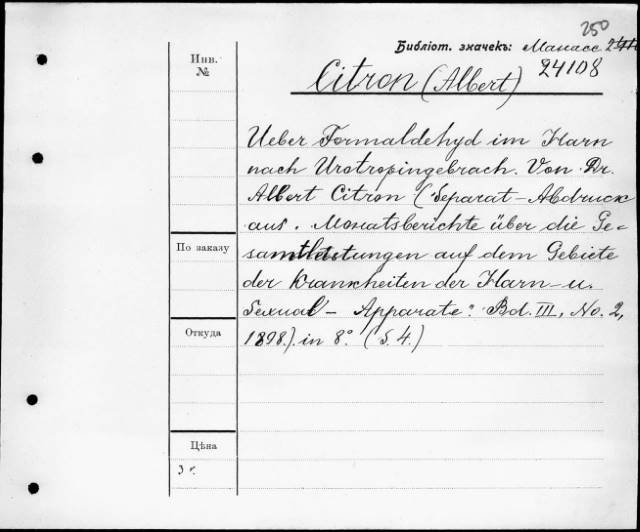 250
Библіот. значекъ: Манасс
24108
Citron (Albert)
Инв.
№
Ueber Formaldehyd im Harn
nach Urotropingebrach. Von Dr.
Albert Citron (Separat-Abdruck
aus. Monatsberichte über die Ge-
samtleistungen auf dem Gebiete
der Krankheiten der Harn- u.
Sexual- Apparate: Bd. III, No. 2,
1898.) in 8° (S. 4.)
По заказу
Откуда
Цѣна